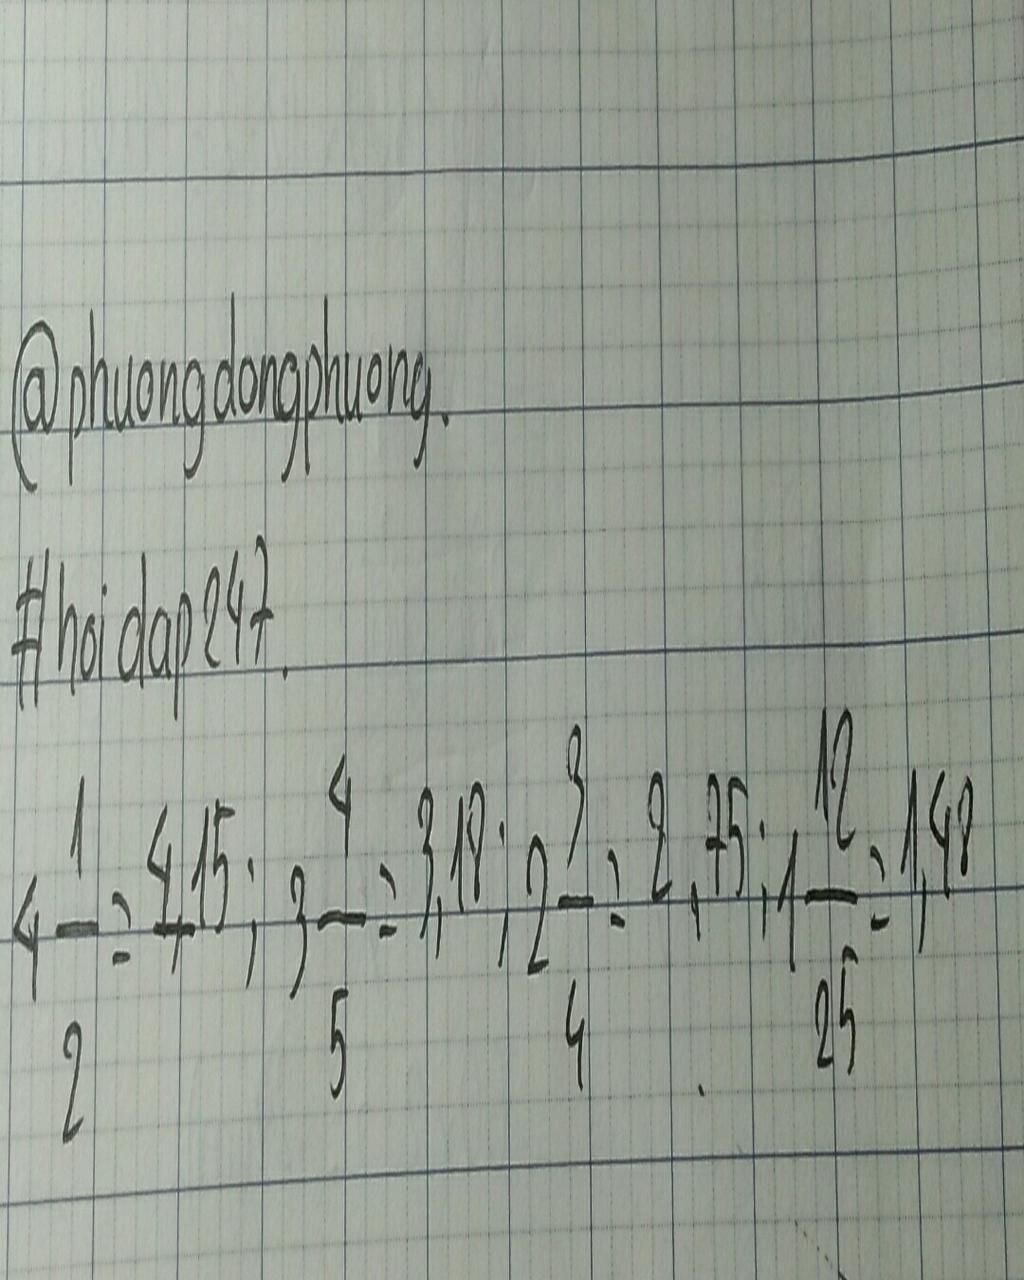 @phuongdongphuong.
#hoidap247.
4 1/2 = 4,15; 3 4/5 = 3,18; 2 3/4 = 2,75; 1 12/25 = 1,48